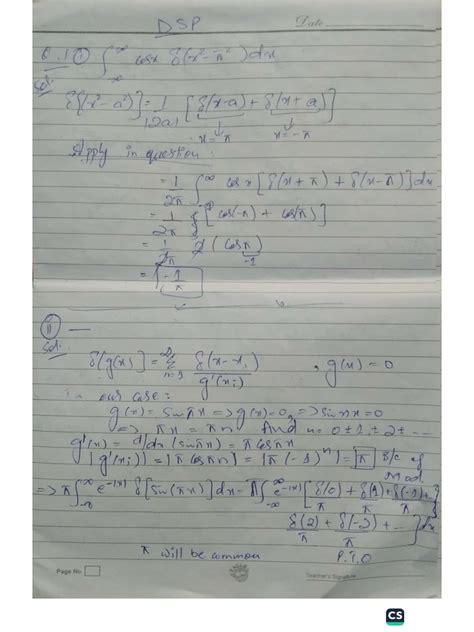 DSP
Date
Q.1 ① ∫_{-∞}^{∞} cosx δ(x²-π²)dx
Sol:
δ[(x²-a²)] = 1/|2a| [δ(x-a) + δ(x+a)]
x=π x=-π
Apply in question:
= 1/2π ∫_{-∞}^{∞} cosx [δ(x+π) + δ(x-π)]dx
= 1/2π {[cos(-π) + cos(π)]
= 1/2π 2 (cosπ)
-1
= -1/π
ii —
Sol:
δ[g(x)] = Σ δ(x-x_i)/g'(x_i) , g(x) = 0
in our case:
g(x) = sinπx => g(x)=0 => sinπx=0
=> πx = πn And n = 0 ±1, ±2 ± ...
g'(x) = d/dx (sinπx) = π cosπx
|g'(x_i)| = |π cosπn| = |π(-1)ⁿ| = π B/c of
Mod.
=> π ∫_{-∞}^{∞} e^{-|x|} δ[sin(πx)]dx = π ∫_{-∞}^{∞} e^{-|x|} [δ(0)/π + δ(1)/π + δ(-1)/π +
δ(2)/π + δ(-2)/π + ...]dx
π will be common P.T.O
Page No
Teacher's Signature
CS